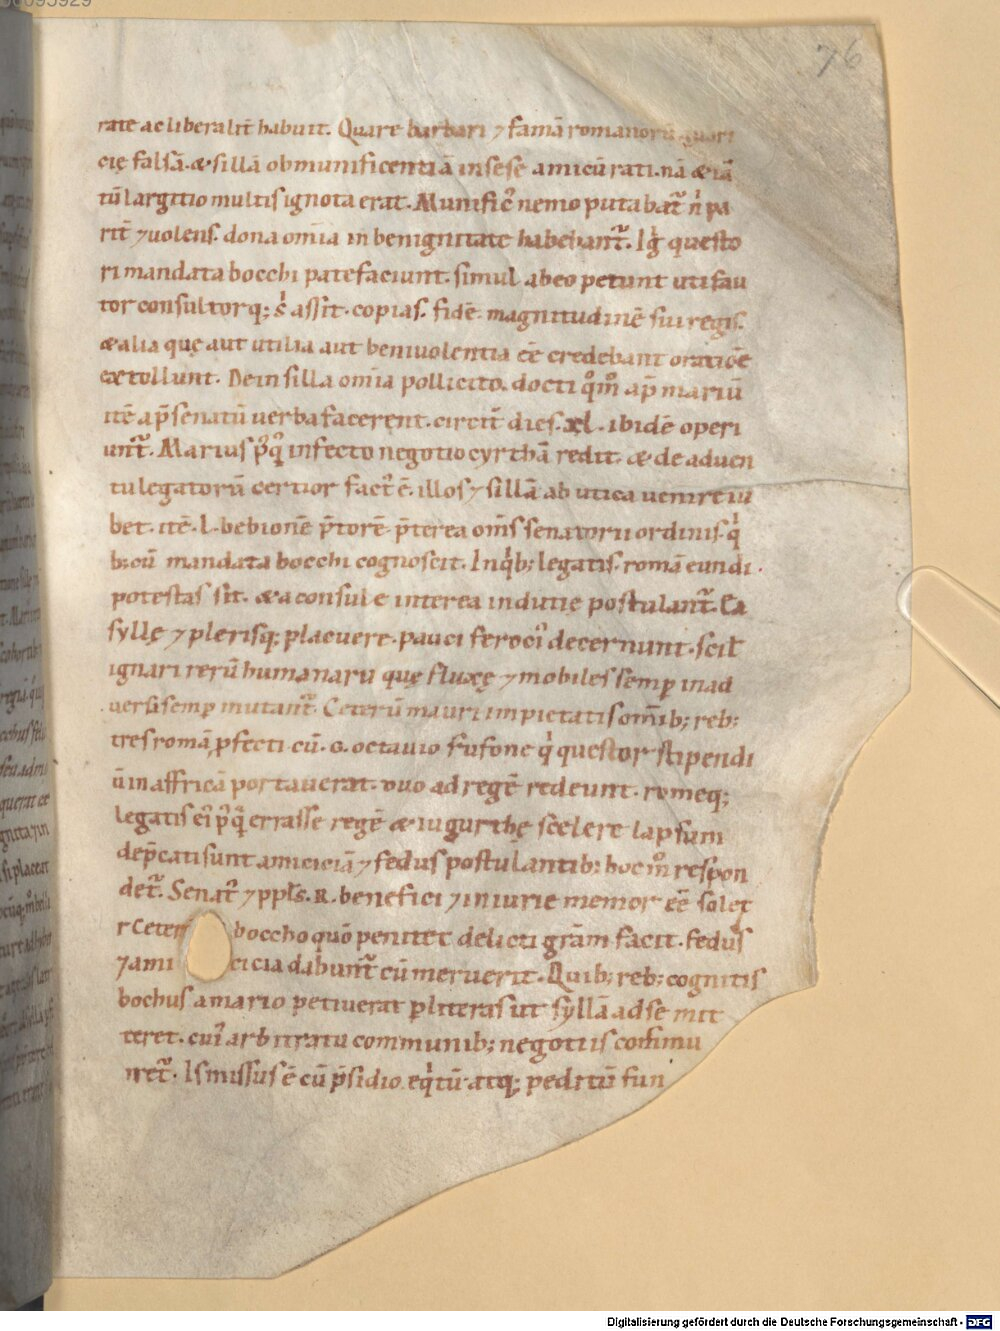 76
rate ac liberalit̄ habuit. Quare barbari ⁊ famā romanorū auari
cię falsā. & sillā ob munificentiā in sese amicū rati. nā & iā
tū largitio multis ignota erat. Munific᷒ nemo putabat᷒ n̊ pa
rit̄ ⁊ uolens. dona om̄ia in benignitate habebant᷒. Ig̊ questo
ri mandata bocchi patefaciunt. simul ab eo petunt uti fau
tor consultorq; s᷒ assit. copias. fidē. magnitudinē sui regis.
& alia quę aut utilia aut beniuolentia eē credebant oratiōe
extollunt. Dein silla om̄ia pollicito. docti q̊m̊ ap̄ mariū
itē ap̄ senatū uerba facerent. circit̄ dies. xl. ibidē operi
unt᷒. Marius p᷒q̊ infecto negotio cyrthā redit. & de aduen
tu legatorū certior fact᷒ ē. illos ⁊ sillā ab utica uenire iu
bet. itē. l. bebionē p̄torē. p̄terea om̄s senatorii ordinis. q̊
b; cū mandata bocchi cognoscit. In q̊b; legatis. romā eundi.
potestas sit. & a consule interea indutię postulant᷒. Ea
syllę ⁊ plerisq; placuere. pauci feroci᷒ decernunt. scil̄
ignari rerū humanaru quę fluxę ⁊ mobiles semp̱ in ad
uersi semp̱ mutant᷒. Ceterū mauri impietatis om̄ib; reb;
tres romā p̱fecti. cū. G. octauio fufone q̊ questor stipendi
ū in affricā portauerat. duo ad regē redeunt. romeq;
legatis ei᷒ p᷒q̊ errasse regē & iugurthę scelere lapsum
dep̄cati sunt amiciciā ⁊ fedus postulantib; hoc m̊ respon
det᷒. Senat᷒ ⁊ ppl̄s. R. benefici ⁊ iniurie memor eē solet
r Ceter boccho quō penitet delicti gr̄am facit. fedus
⁊ ami cicia dabunt᷒ cū meruerit. Quib; reb; cognitis
bochus a mario petiuerat p̱ literas ut syllā ad se mit
teret. cui᷒ arbitratu communib; negotiis com̄mu
niret᷒. Is missus ē cū p̄sidio eq̊tū atq; peditū fun
Digitalisierung gefördert durch die Deutsche Forschungsgemeinschaft - DFG